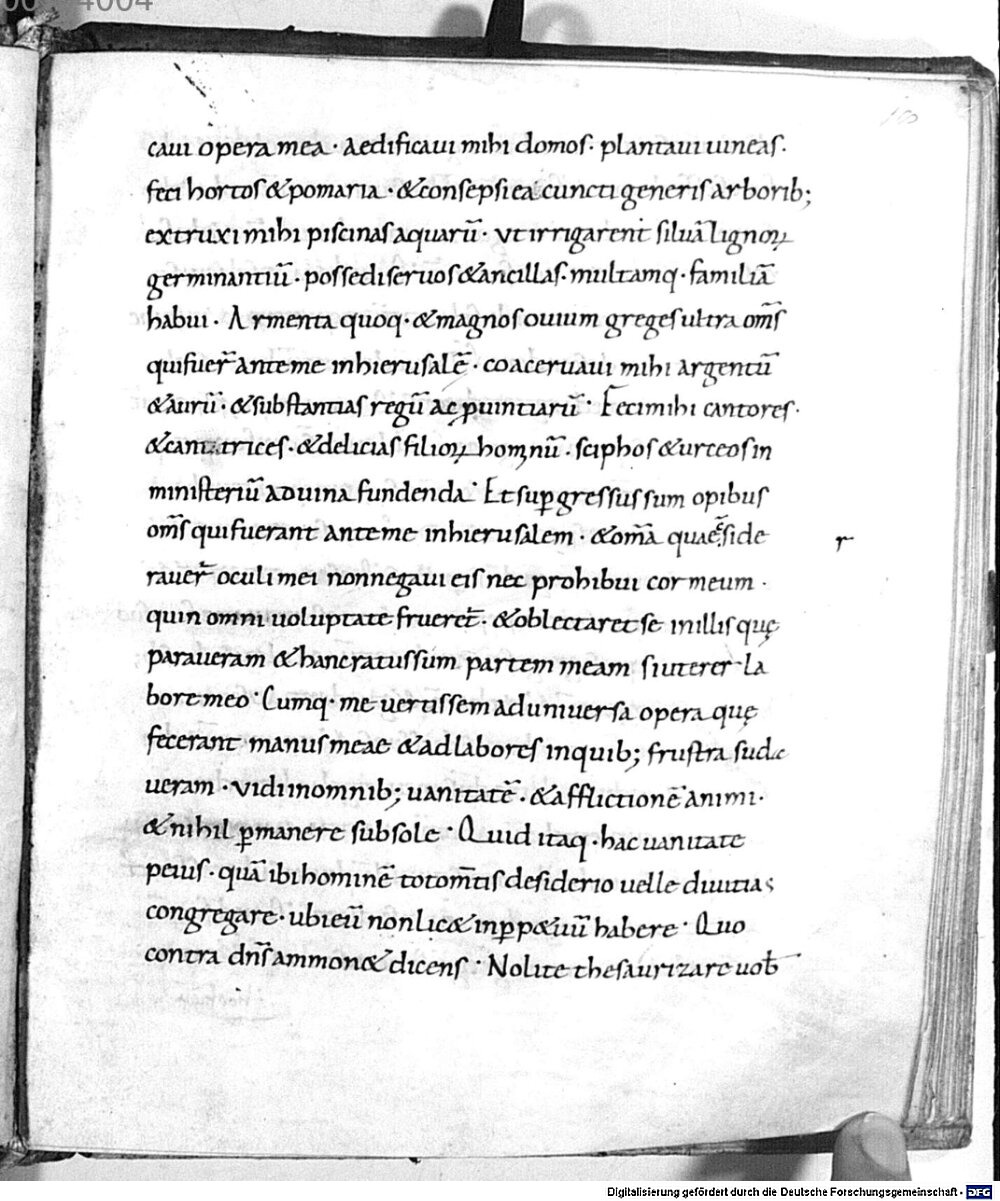 caui opera mea · Aedificaui mihi domos · plantaui uineas ·
feci hortos & pomaria · & consepsi ea cuncti generis arborib;
extruxi mihi piscinas aquarū · vt irrigarent siluā lignoꝝ
germinantiū · possedi seruos & ancillas · multamq· familiā
habui · Armenta quoq· & magnos ouium greges ultra om̄s
qui fuer̄ ante me in hierusalē · coaceruaui mihi argentū
& aurū · & substantias regū ac ꝓuintiarū · Feci mihi cantores ·
& cantatrices · & delicias filioꝝ hominū · sciphos & urceos in
ministeriū ad uina fundenda · Et suꝑgressus sum opibus
om̄s qui fuerant ante me in hierusalem · & om̄a quae deside
r
rauer̄ oculi mei non negaui eis nec prohibui cor meum ·
quin omni uoluptate frueret̄ · & oblectaret se in illis quę
paraueram & hanc ratus sum partem meam si uterer la
bore meo · Cumq· me uertissem ad uniuersa opera quę
fecerant manus meae & ad labores in quib; frustra suda
ueram · vidi in omnib; uanitatē · & afflictionē animi ·
& nihil ꝑmanere sub sole · Quid itaq· hac uanitate
peius · quā ibi hominē toto m̄tis desiderio uelle diuitias
congregare · ubi eū non lic& in ꝑp&uū habere · Quo
contra dn̄s ammon& dicens · Nolite thesaurizare uob̄
Digitalisierung gefördert durch die Deutsche Forschungsgemeinschaft - DFG